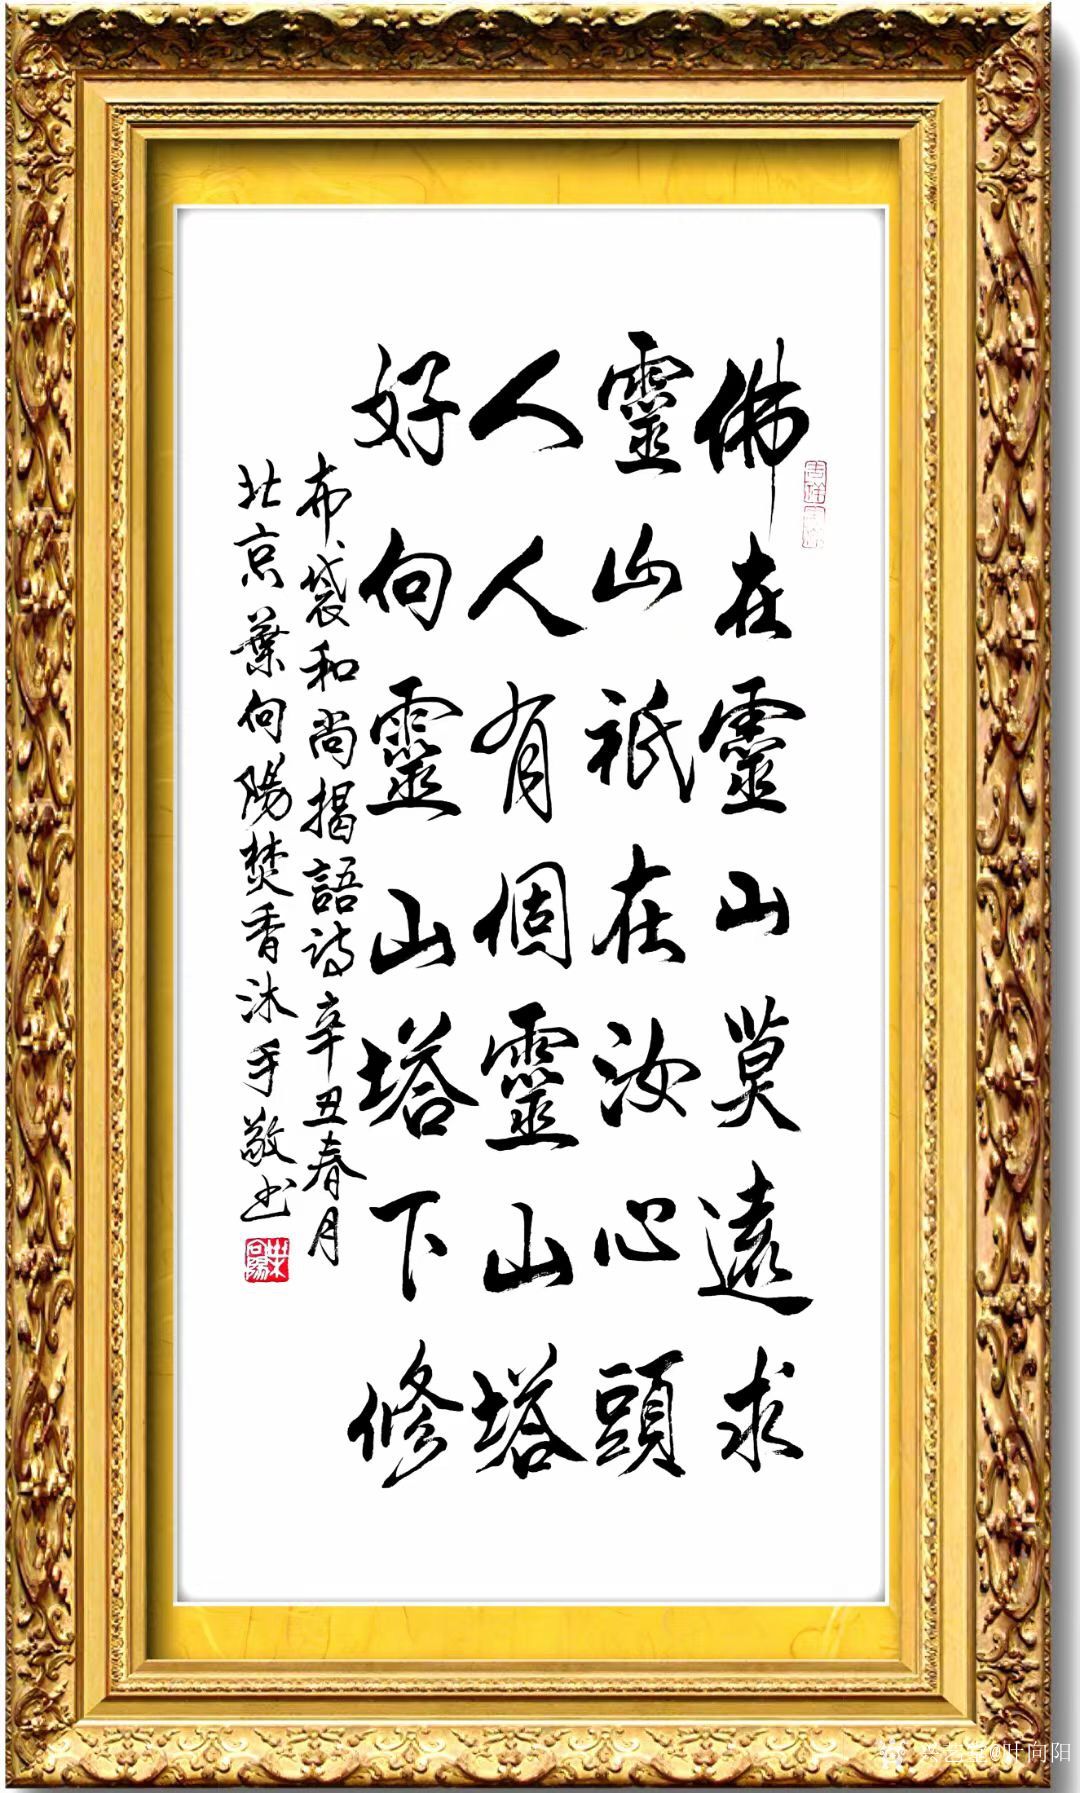 佛在靈山莫遠求
靈山衹在汝心頭
人人有個靈山塔
好向靈山塔下修
布袋和尚揭語詩辛丑春月
北京葉向陽焚香沐手敬书
葉向陽
@叶向阳